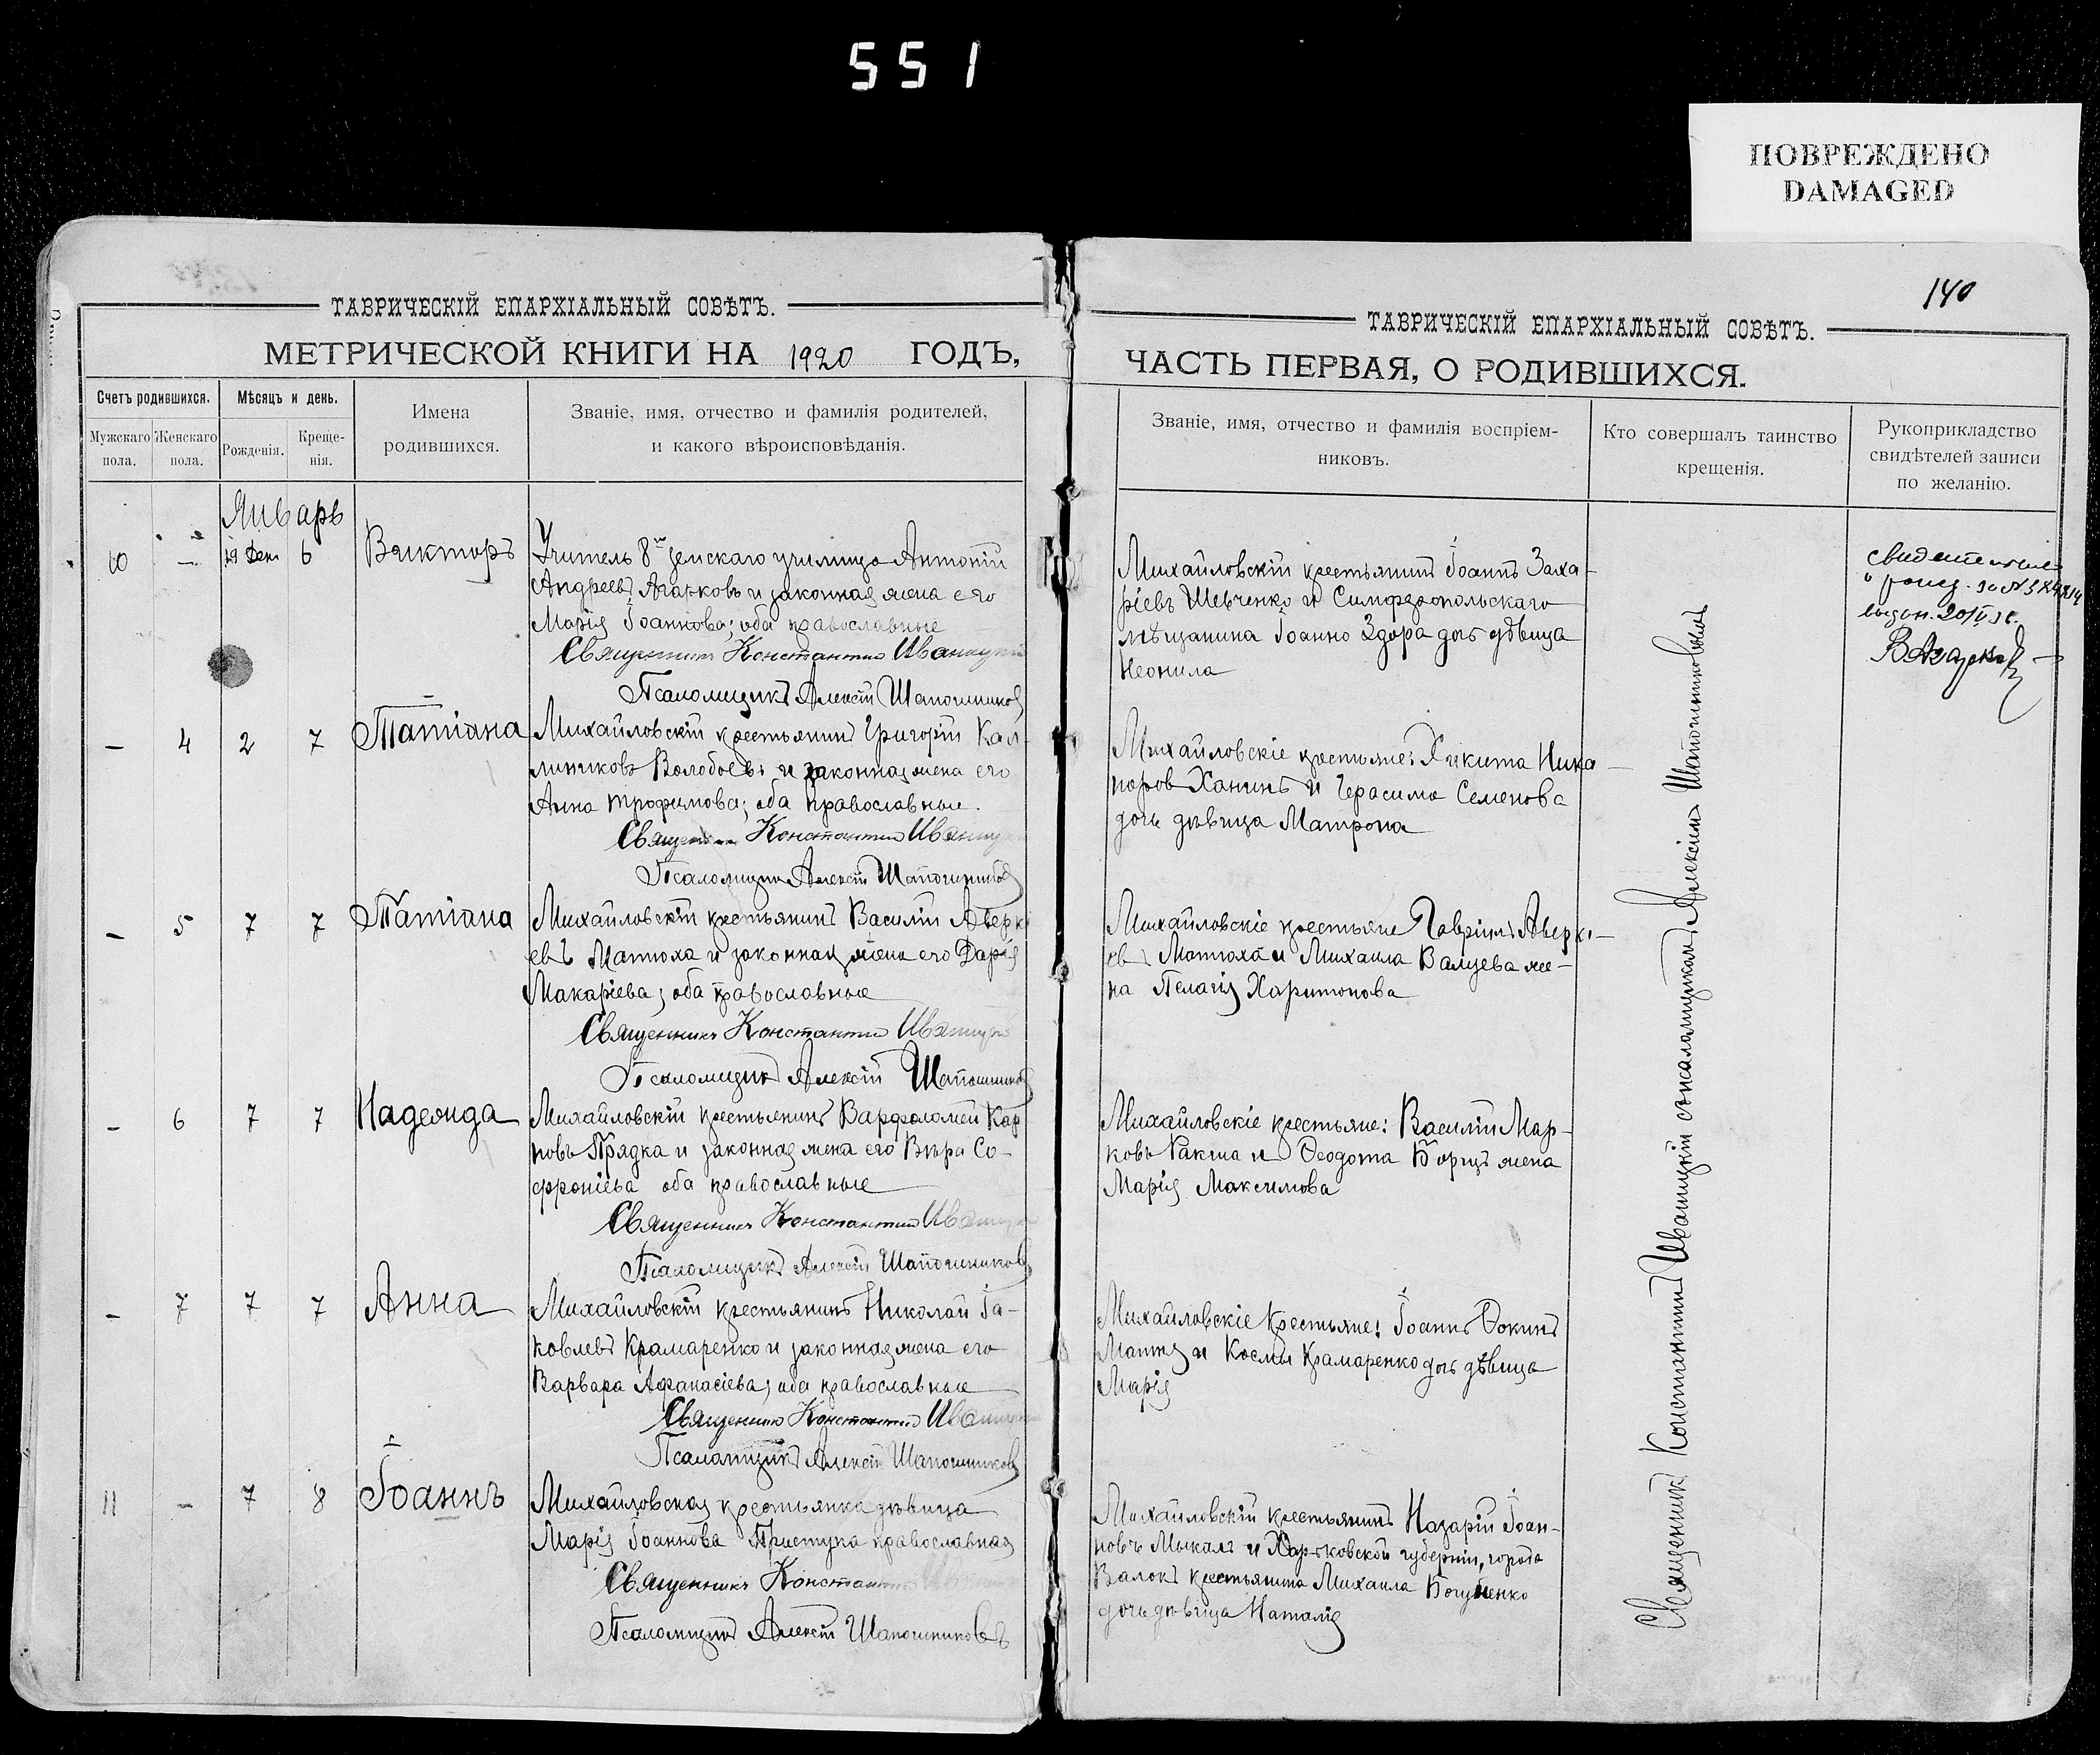 551
ПОВРЕЖДЕНО
DAMAGED
140
ТАВРИЧЕСКІЙ ЕПАРХІАЛЬНЫЙ СОВѢТЪ.
МЕТРИЧЕСКОЙ КНИГИ НА 1920 ГОДЪ,
Счетъ родившихся.
Мѣсяцъ и день.
Мужскаго пола.
Женскаго пола.
Рожденія.
Креще-
нія.
Имена
родившихся.
Званіе, имя, отчество и фамилія родителей,
и какого вѣроисповѣданія.
Январь
10 — 19 Дек 6 Викторъ
Учитель 8го земскаго училища Антоній
Андреевъ Агарковъ и законная жена его
Марія Іоаннова; оба православные
Священникъ Константин Иваницкій
Псаломщикъ Алексій Шапошников
— 4 2 7 Татіана
Михайловскій крестьянинъ Григорій Кал-
линиковъ Волобоевъ и законная жена его
Анна Трофимова; оба православные.
Священник Константин Иваницкій
Псаломщик Алексій Шапошников
— 5 7 7 Татіана
Михайловскій крестьянинъ Василій Аверкі
евъ Матюха и законная жена его Дарія
Макаріева; оба православные
Священникъ Константин Иваницкій
Псаломщикъ Алексій Шапошников
— 6 7 7 Надежда
Михайловскій крестьянинъ Варфоломей Кар
повъ Прядка и законная жена его Вѣра Со-
фроніева оба православные
Священникъ Константин Иваницкій
Псаломщикъ Алексій Шапошников
— 7 7 7 Анна
Михайловскій крестьянинъ Николай Іа-
ковлевъ Крамаренко и законная жена его
Варвара Афанасіева; оба православные
Священник Константин Иваницкій
Псаломщикъ Алексій Шапошников
11 — 7 8 Іоаннъ
Михайловская крестьянка дѣвица
Марія Іоаннова Приступа православная
Священникъ Константин
Псаломщикъ Алексій Шапошниковъ
ТАВРИЧЕСКІЙ ЕПАРХІАЛЬНЫЙ СОВѢТЪ.
ЧАСТЬ ПЕРВАЯ, О РОДИВШИХСЯ.
Званіе, имя, отчество и фамилія воспріем-
никовъ.
Кто совершалъ таинство
крещенія.
Рукоприкладство
свидѣтелей записи
по желанію.
Михайловскій крестьянинъ Іоаннъ Заха-
ріевъ Шевченко и Симферопольскаго
мѣщанина Іоанна Здора дочь дѣвица
Неонила
Михайловскіе крестьяне: Никита Ника-
норов Ханинъ и Герасима Семенова
дочь дѣвица Матрона
Михайловскіе крестьяне Гавріилъ Аверкі-
евъ Матюха и Михаила Валуева же-
на Пелагія Харитонова
Михайловскіе крестьяне: Василій Мар-
ковъ Ракша и Ѳеодота Борщъ жена
Марія Максимова
Михайловскіе крестьяне: Іоаннъ Ѳокинъ
и Космы Крамаренко дочь дѣвица
Марія
Михайловскій крестьянинъ Назарій Іоан-
новъ Мыкалъ и Харьковской губерніи, города
Валокъ крестьянина Михаила
дочь дѣвица Наталія
Священник Константин Иваницкій съ псаломщиком Алексіем Шапошниковым
выдан. 20/V